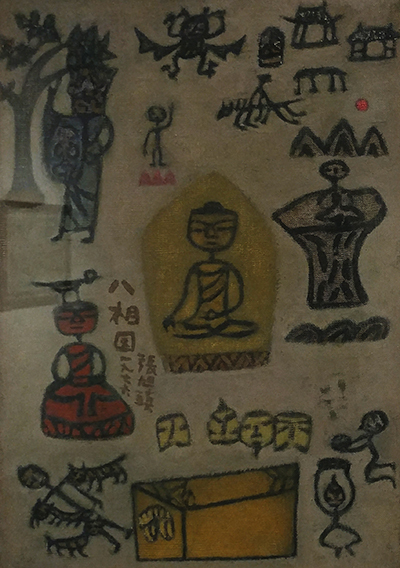 八相図
一九七六
張旭鎭